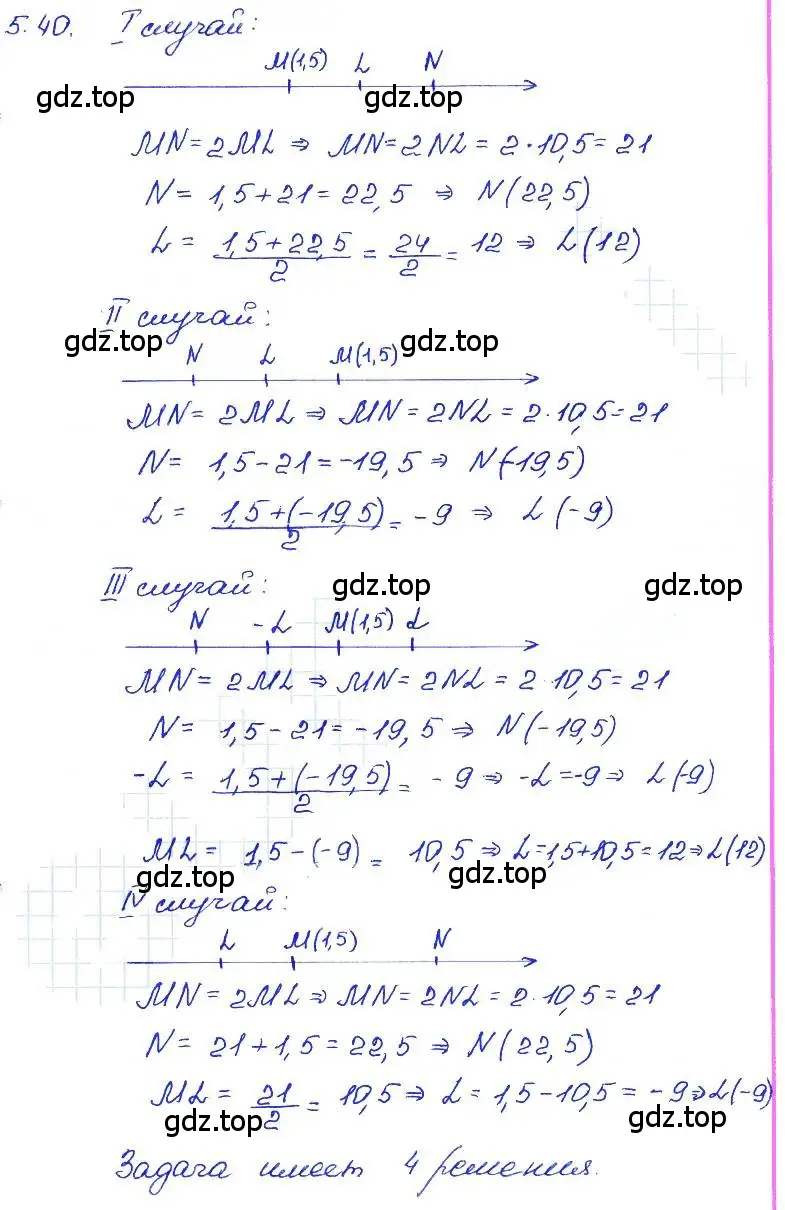 5.40. I случай:
M(1,5) L N
gdz.top gdz.top
MN = 2ML ⇒ MN = 2NL = 2·10,5 = 21
N = 1,5 + 21 = 22,5 ⇒ N(22,5)
L = (1,5 + 22,5)/2 = 24/2 = 12 ⇒ L(12)
II случай:
gdz.top N L M(1,5) gdz.top
MN = 2ML ⇒ MN = 2NL = 2·10,5 = 21
N = 1,5 - 21 = -19,5 ⇒ N(-19,5)
L = (1,5 + (-19,5))/2 = -9 ⇒ L(-9)
III случай: gdz.top gdz.top
N -L M(1,5) L
MN = 2ML ⇒ MN = 2NL = 2·10,5 = 21
N = 1,5 - 21 = -19,5 ⇒ N(-19,5)
-L = (1,5 + (-19,5))/2 = -9 ⇒ -L = -9 ⇒ L(-9)
ML = 1,5 - (-9) = 10,5 ⇒ L = 1,5 + 10,5 = 12 ⇒ L(12)
gdz.top gdz.top
IV случай:
L M(1,5) N
MN = 2ML ⇒ MN = 2NL = 2·10,5 = 21
N = 21 + 1,5 = 22,5 ⇒ N(22,5)
ML = 21/2 = 10,5 ⇒ L = 1,5 - 10,5 = -9 ⇒ L(-9)
gdz.top gdz.top
Задача имеет 4 решения.